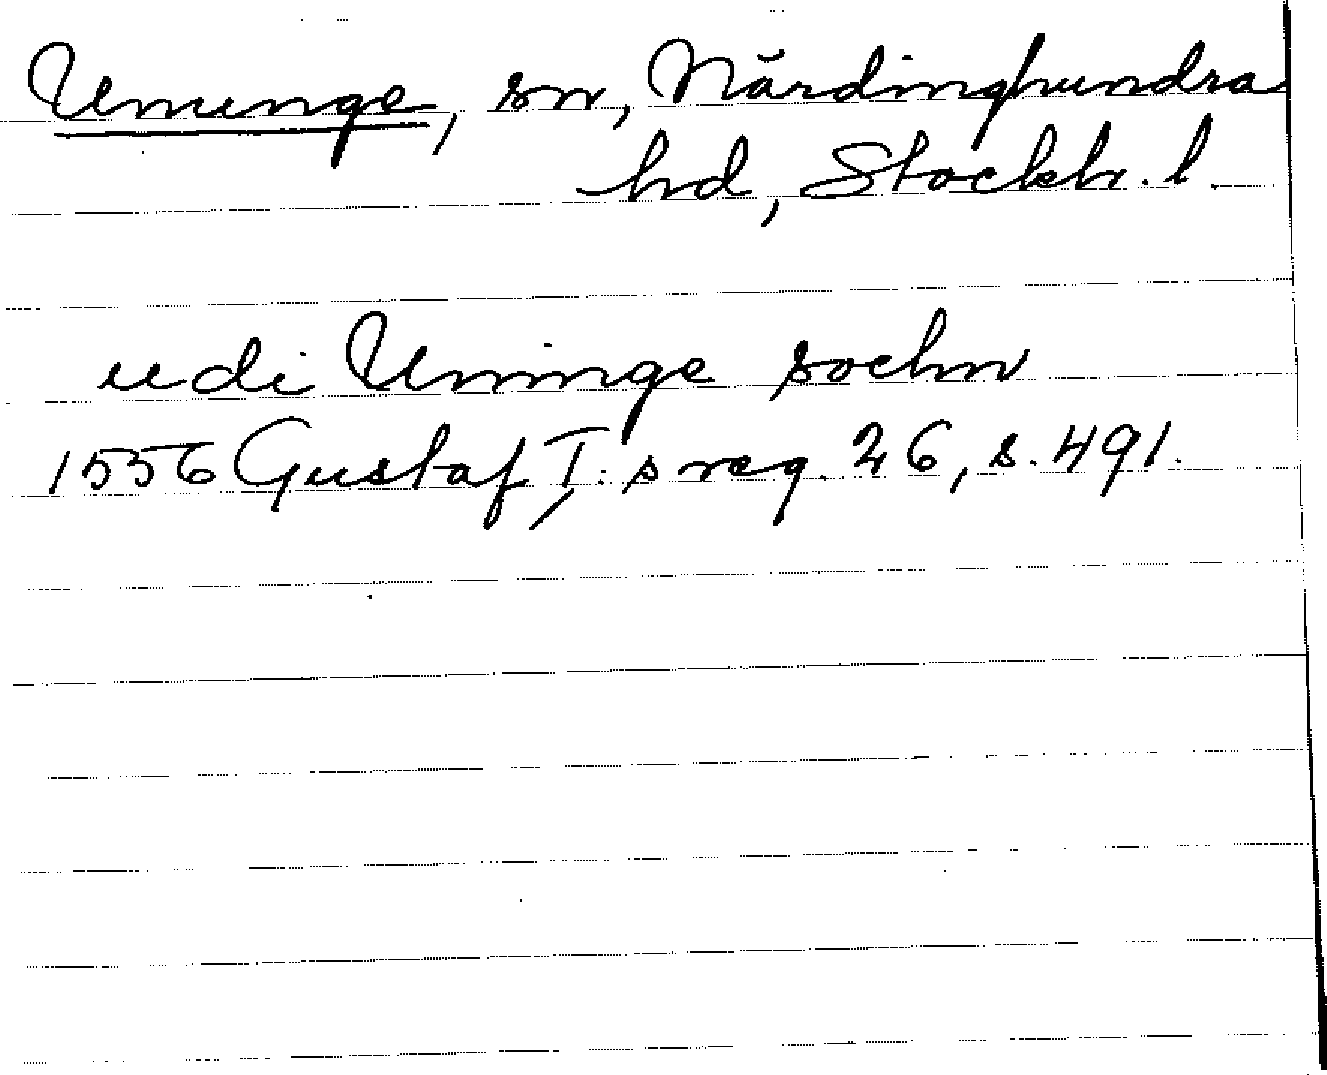 Ununge, sn, Närdinghundra
hd, Stockh. l.
udi Uninge sochn
1556 Gustaf I:s reg. 26, s. 491.